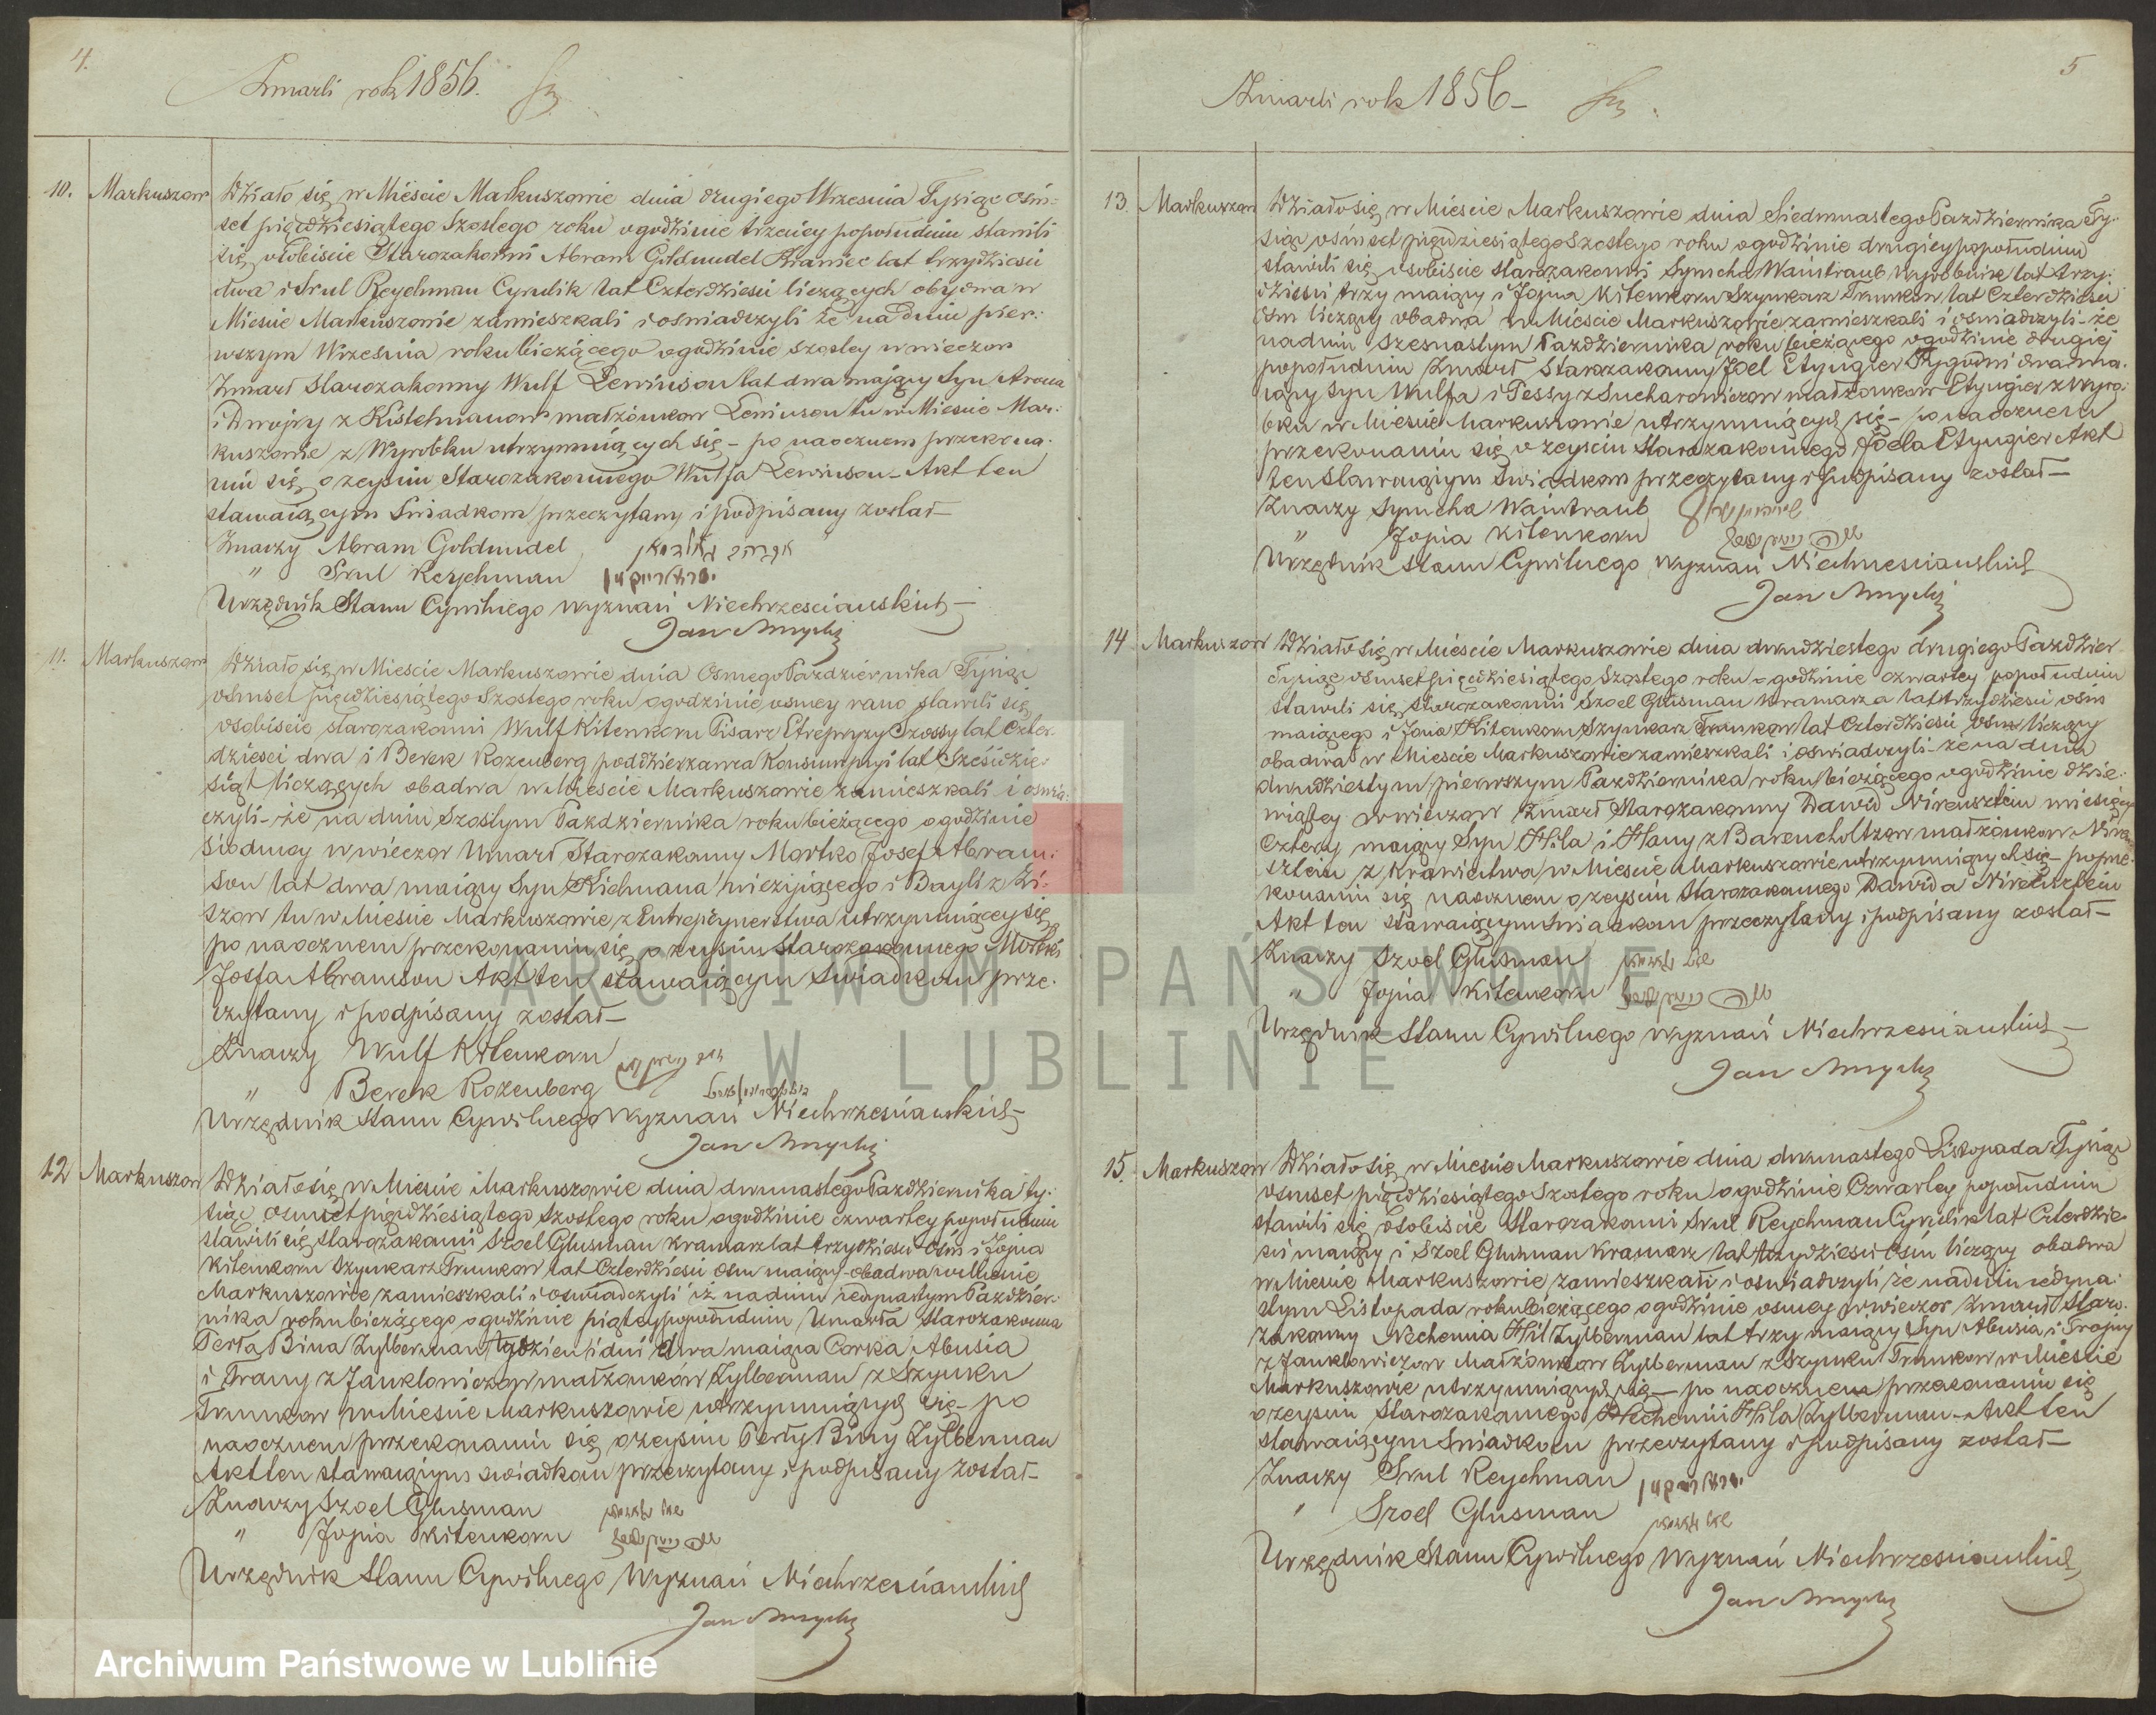 4.
Zmarli rok 1856.
10. Markuszow
Działo się w Mieście Markuszowie dnia drugiego Wrzesnia Tysiąc ośm-
set pięćdziesiątego Szostego roku o godzinie trzeciey popołudniu stawili
się osobiscie Starozakonni Abram Goldnudel Kramiec lat trzydziesci
dwa i Srul Reychman Cyrulik lat Czterdziesci liczących obydwa w
Miescie Markuszowie zamieszkali i oświadczyli że na dniu pier-
wszym Wrzesnia roku bieżącego o godzinie szostey w wieczor
Zmarł Starozakonny Wulf Lewinson lat dwa mający Syn Arona
i Dwojry z Kistelmanow małżonkow Lewinson tu w Miescie Mar-
kuszowie z Wyrobku utrzymuiących się – po naocznem przekona-
niu się o zeyściu Starozakonnego Wulfa Lewinson – Akt ten
stawaiącym Swiadkom przeczytany i podpisany został –
Znaczy Abram Goldnudel
" Srul Reychman
Urzędnik Stanu Cywilnego wyznań Niechrzesciańskich –
Jan
11. Markuszow
Działo się w Miescie Markuszowie dnia Osmego Pazdziernika Tysiąc
osmset pięćdziesiątego Szostego roku o godzinie osmey rano stawili się
osobiscie starozakonni Wulf Kitenkorn Pisarz Etrepryzy Szossy lat Czter-
dziesci dwa i Berek Rozenberg poddzierzawca Konsumpcyi lat Sześćdzie-
siąt liczących obadwa w Miescie Markuszowie zamieszkali i oswia-
czyli – że na dniu Szostym Pazdziernika roku bieżącego o godzinie
siodmey w wieczor Umarł Starozakonny Mortko Josef Abram-
son lat dwa maiący Syn Kichmana nieżyjącego i Bayli z Zi-
szow tu w Miescie Markuszowie z Entrepryнerstwa utrzymuiącey się
po naocznem przekonaniu się o zeysciu Starozakonnego Mortki
Josfa Abramson Akt ten stawaiącym Swiadkom prze-
czytany i podpisany został –
Znaczy Wulf Kitenkorn
" Berek Rozenberg
Urzędnik Stanu Cywilnego Wyznań Niechrzesciańskich –
Jan
12 Markuszow
Działo się w Miescie Markuszowie dnia dwunastego Pazdziernika ty-
siąc osmset pięćdziesiątego szostego roku o godzinie czwartey popołudniu
stawili się starozakonni Szoel Glusman Kramarz lat trzydziesci ośm i Jojna
Kitenkorn Szynkarz Trunkow lat Czterdziesci osm maiący – obadwa w Miescie
Markuszowie zamieszkali i oswiadczyli iż na dniu iedynastym Pazdzier-
nika roku bieżącego o godzinie piątey popołudniu Umarła Starozakonna
Perła Bina Zylberman tydzien i dni dwa maiąca Corka Abusia
i Frany z Janklowiczow małżonków Zylberman z Szynku
Trunkow w Miescie Markuszowie utrzymuiących się – po
naocznem przekonaniu się o zeysciu Perły Biny Zylberman
Akt ten stawaiącym swiadkom przeczytany i podpisany został –
Znaczy Szoel Glusman
" Jojna Kitenkorn
Urzędnik Stanu Cywilnego Wyznań Niechrzesciańskich
Jan
5
Zmarli rok 1856 –
13. Markuszow
Działo się w Miescie Markuszowie dnia Siedmnastego Pazdziernika Ty-
siąc ośmset pięćdziesiątego Szostego roku o godzinie drugiey popołudniu
stawili się osobiscie starozakonni Symcha Waintraub Wyrobnik lat trzy-
dziesci trzy maiący i Jojna Kitenkorn Szynkarz Trunkow lat Czterdziesci
osm liczący obadwa w Miescie Markuszowie zamieszkali i oswiadczyli – że
na dniu szesnastym Pazdziernika roku bieżącego o godzinie drugiej
popołudniu Zmarł Starozakonny Joel Etyngier Tygodni dwa ma-
iący Syn Wulfa i Pessy z Sucharowiczow małżonkow Etyngier z Wyro-
bku w Miescie Markuszowie utrzymuiących się – po naocznem
przekonaniu się o zeysciu Starozakonnego Joela Etyngier Akt
ten Stawaiącym Swiadkom przeczytany i podpisany został –
Znaczy Symcha Waintraub
" Jojna Kitenkorn
Urzędnik Stanu Cywilnego wyznań Niechrzesciańskich
Jan
14 Markuszow
Działo się w Miescie Markuszowie dnia dwudziestego drugiego Pazdzier
Tysiąc osmset pięćdziesiątego Szostego roku o godzinie czwartey popołudniu
stawili się starozakonni Szoel Glusman Kramarza lat trzydziesci ośm
maiącego i Jona Kitenkorn Szynkarz Trunkow lat Czterdziesci osm liczący
obadwa w Miescie Markuszowie zamieszkali i oswiadczyli – że na dniu
dwudziestym pierwszym Pazdziernika roku bieżącego o godzinie dzie-
wiątey w wieczor Zmarł Starozakonny Dawid Nirensztein miesięcy
Cztery maiący Syn Hila i Hany z Barencholtzow małżonkow Niren-
sztein z Krawiectwa w Miescie Markuszowie utrzymuiących się – po prze-
konaniu się naocznem o zeysciu Starozakonnego Dawida Nirensztein
Akt ten stawaiącym Swiadkom przeczytany i podpisany został –
Znaczy Szoel Glusman
" Jojna Kitenkorn
Urzędnik Stanu Cywilnego wyznań Niechrzesciańskich –
Jan
15. Markuszow
Działo się w Miescie Markuszowie dnia dwunastego Listopada Tysiąc
osmset pięćdziesiątego Szostego roku o godzinie Czwartey popołudniu
stawili się osobiscie Starozakonni Srul Reychman Cyrulik lat Czterdzie-
sci maiący i Szoel Glusman Kramarz lat trzydziesci ośm liczący obadwa
w Miescie Markuszowie zamieszkali i oswiadczyli że na dniu iedyna-
stym Listopada roku bieżącego o godzinie osmey w wieczor Zmarł Staro-
zakonny Nechemia Hil Zylberman lat trzy maiący Syn Abusia i Frajny
z Janklowiczow Małżonkow Zylberman z Szynku Trunkow w Miescie
Markuszowie utrzymuiących się – po naocznem przekonaniu się
o zeysciu Starozakonnego Nechemii Hila Zylberman – Akt ten
stawaiącym Swiadkom przeczytany i podpisany został –
Znaczy Srul Reychman
" Szoel Glusman
Urzędnik Stanu Cywilnego Wyznań Niechrzesciańskich
Jan
ARCHIWUM PAŃSTWOWE
W LUBLINIE
Archiwum Państwowe w Lublinie